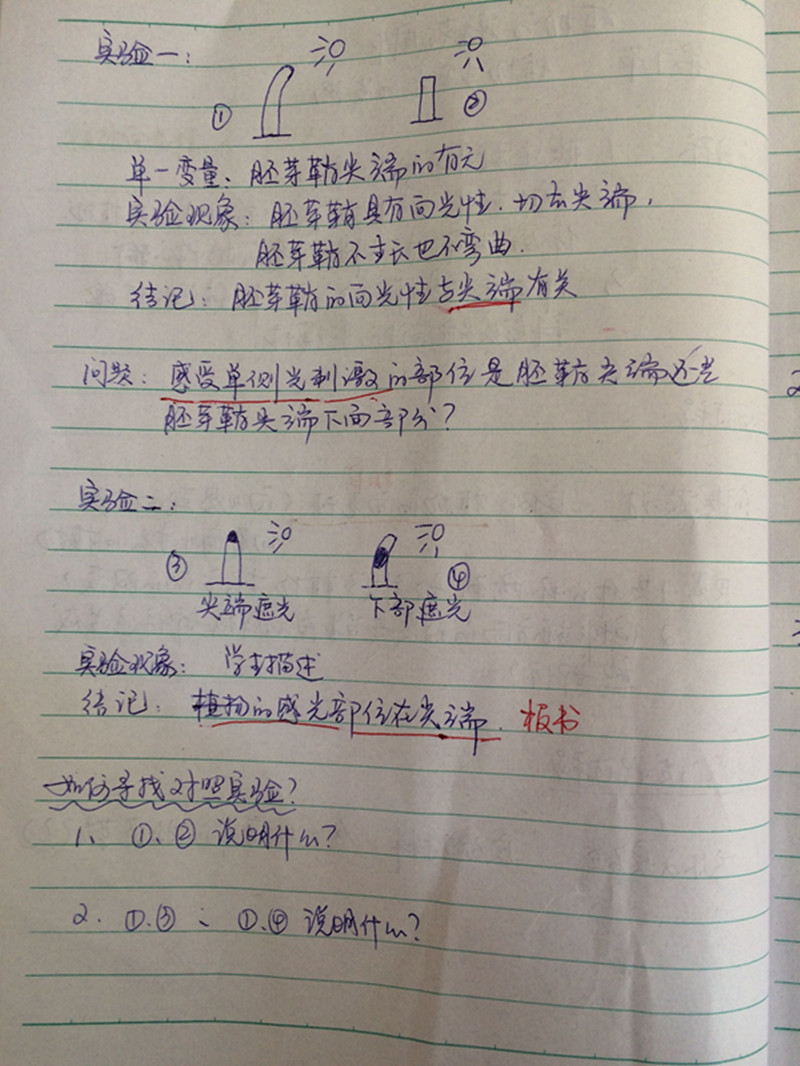 实验一:
① ②
单一变量: 胚芽鞘尖端的有无
实验现象: 胚芽鞘具有向光性. 切去尖端,
胚芽鞘不生长也不弯曲.
结论: 胚芽鞘的向光性与尖端有关
问题: 感受单侧光刺激的部位是胚芽鞘尖端还是
胚芽鞘尖端下面部分?
实验二:
③ ④
尖端遮光 下部遮光
实验现象: 学生描述
结论: 植物的感光部位在尖端. 板书
如何寻找对照实验?
1、 ①、② 说明什么?
2. ①.③ ; ①.④ 说明什么?